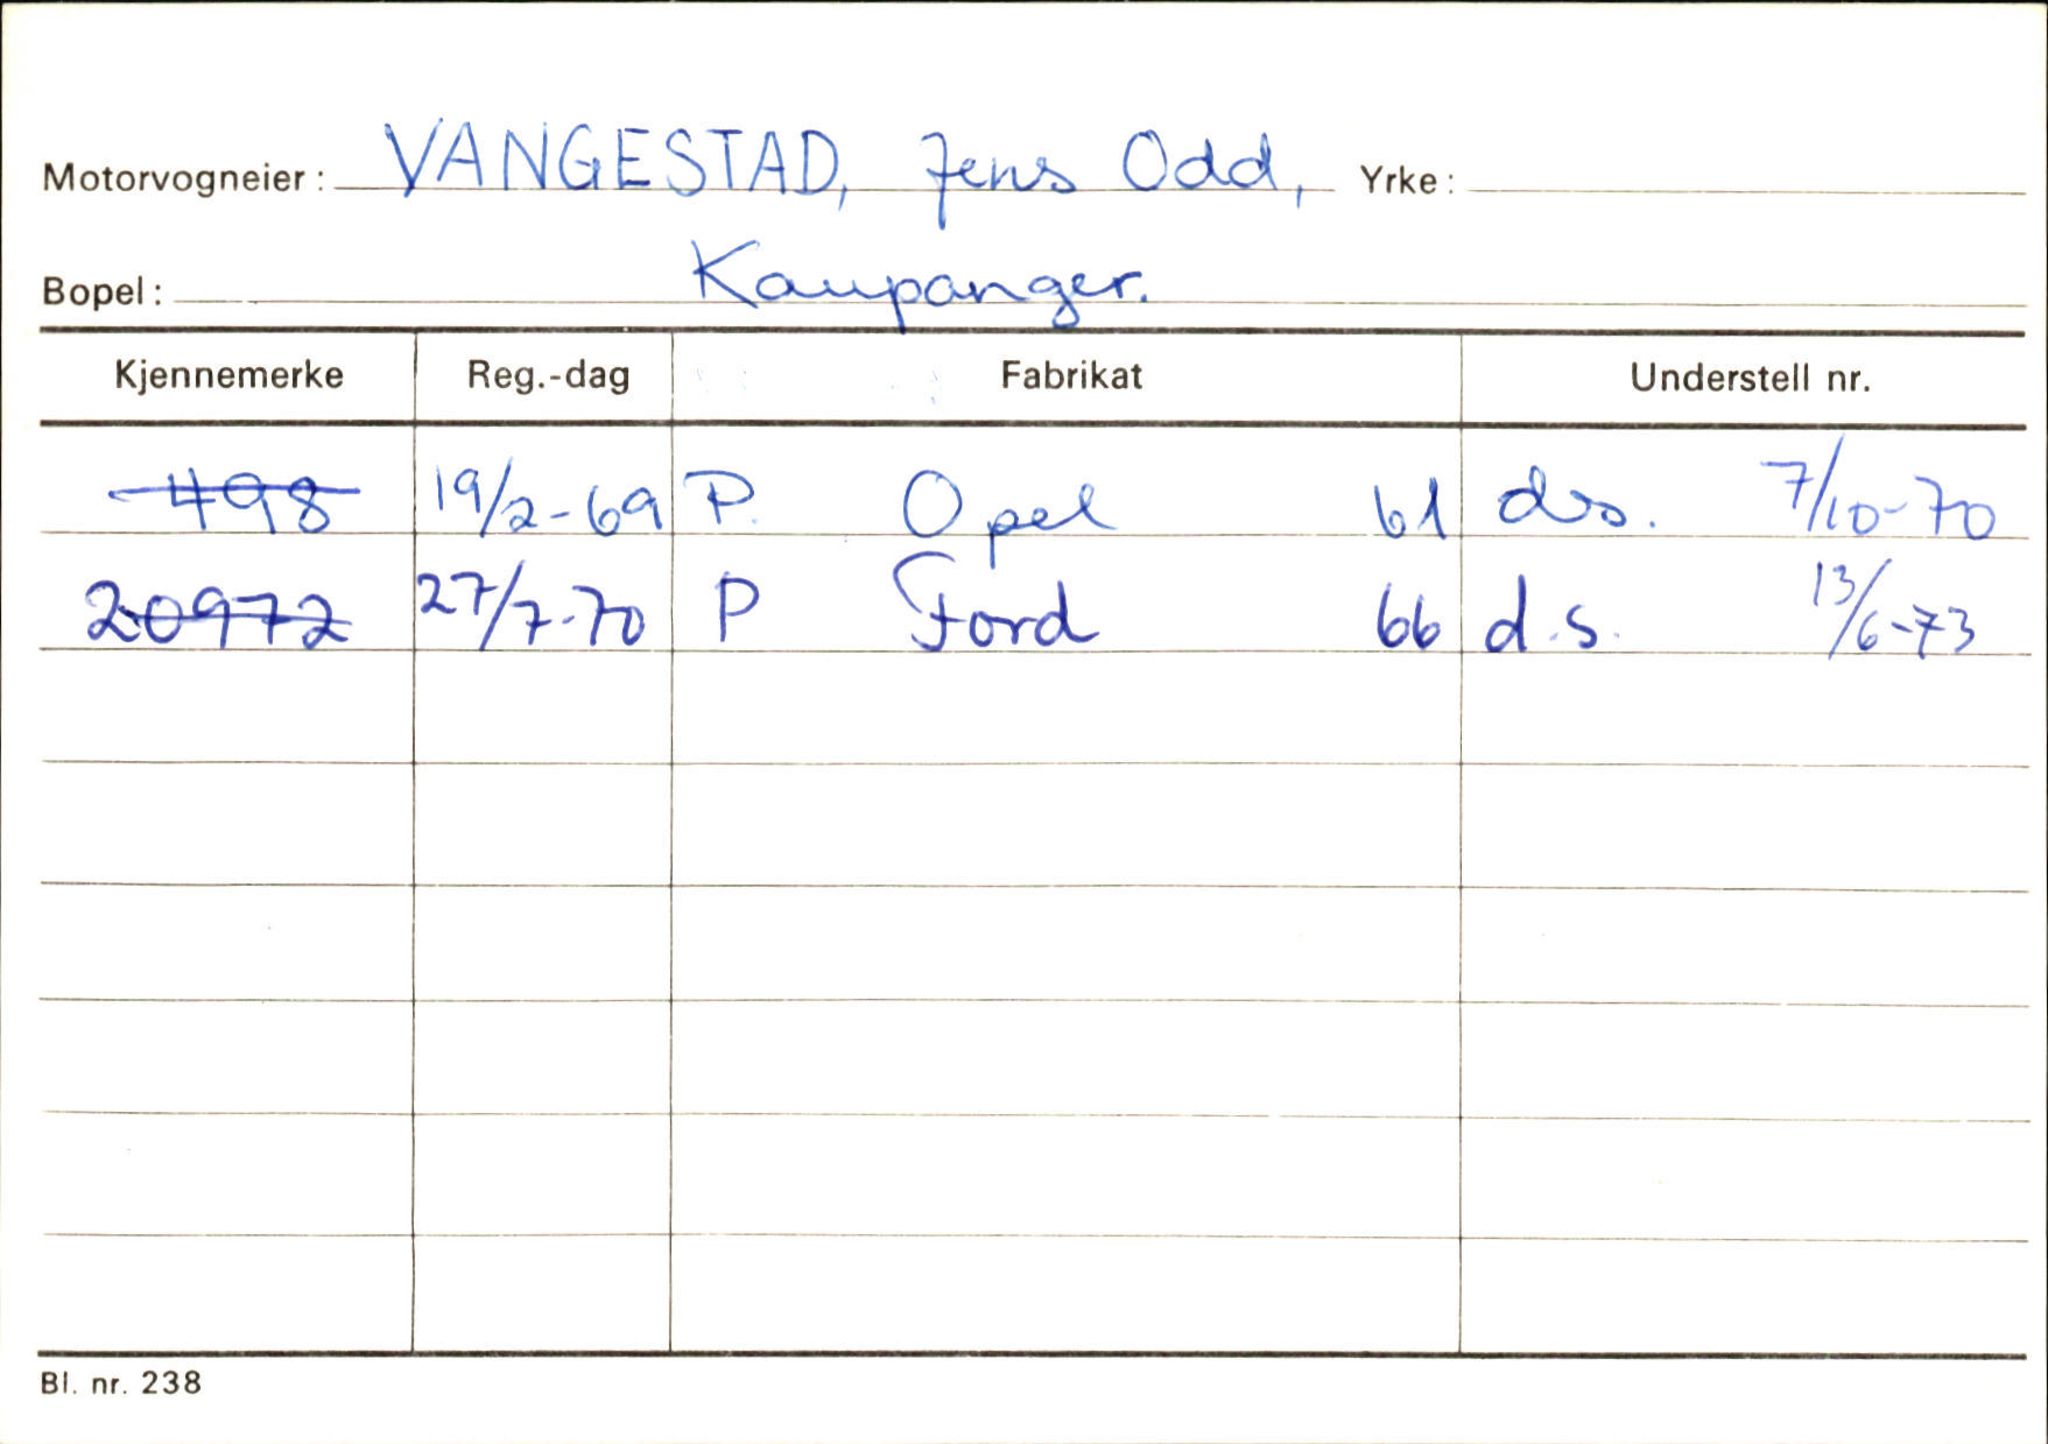 Motorvogneier: VANGESTAD, Jens Odd, Yrke:
Bopel: Kaupanger.
Kjennemerke Reg.-dag Fabrikat Understell nr.
498 19/2-69 P. Opel 61 ds. 7/10-70
20972 27/7-70 P Ford 66 d.s. 13/6-73
Bl. nr. 238